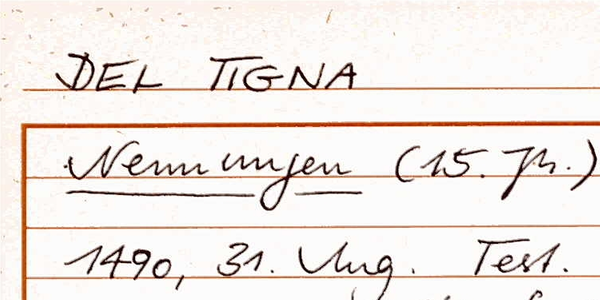 DEL TIGNA
Nennungen (15. Jh.)
1490, 31. Aug. Test.